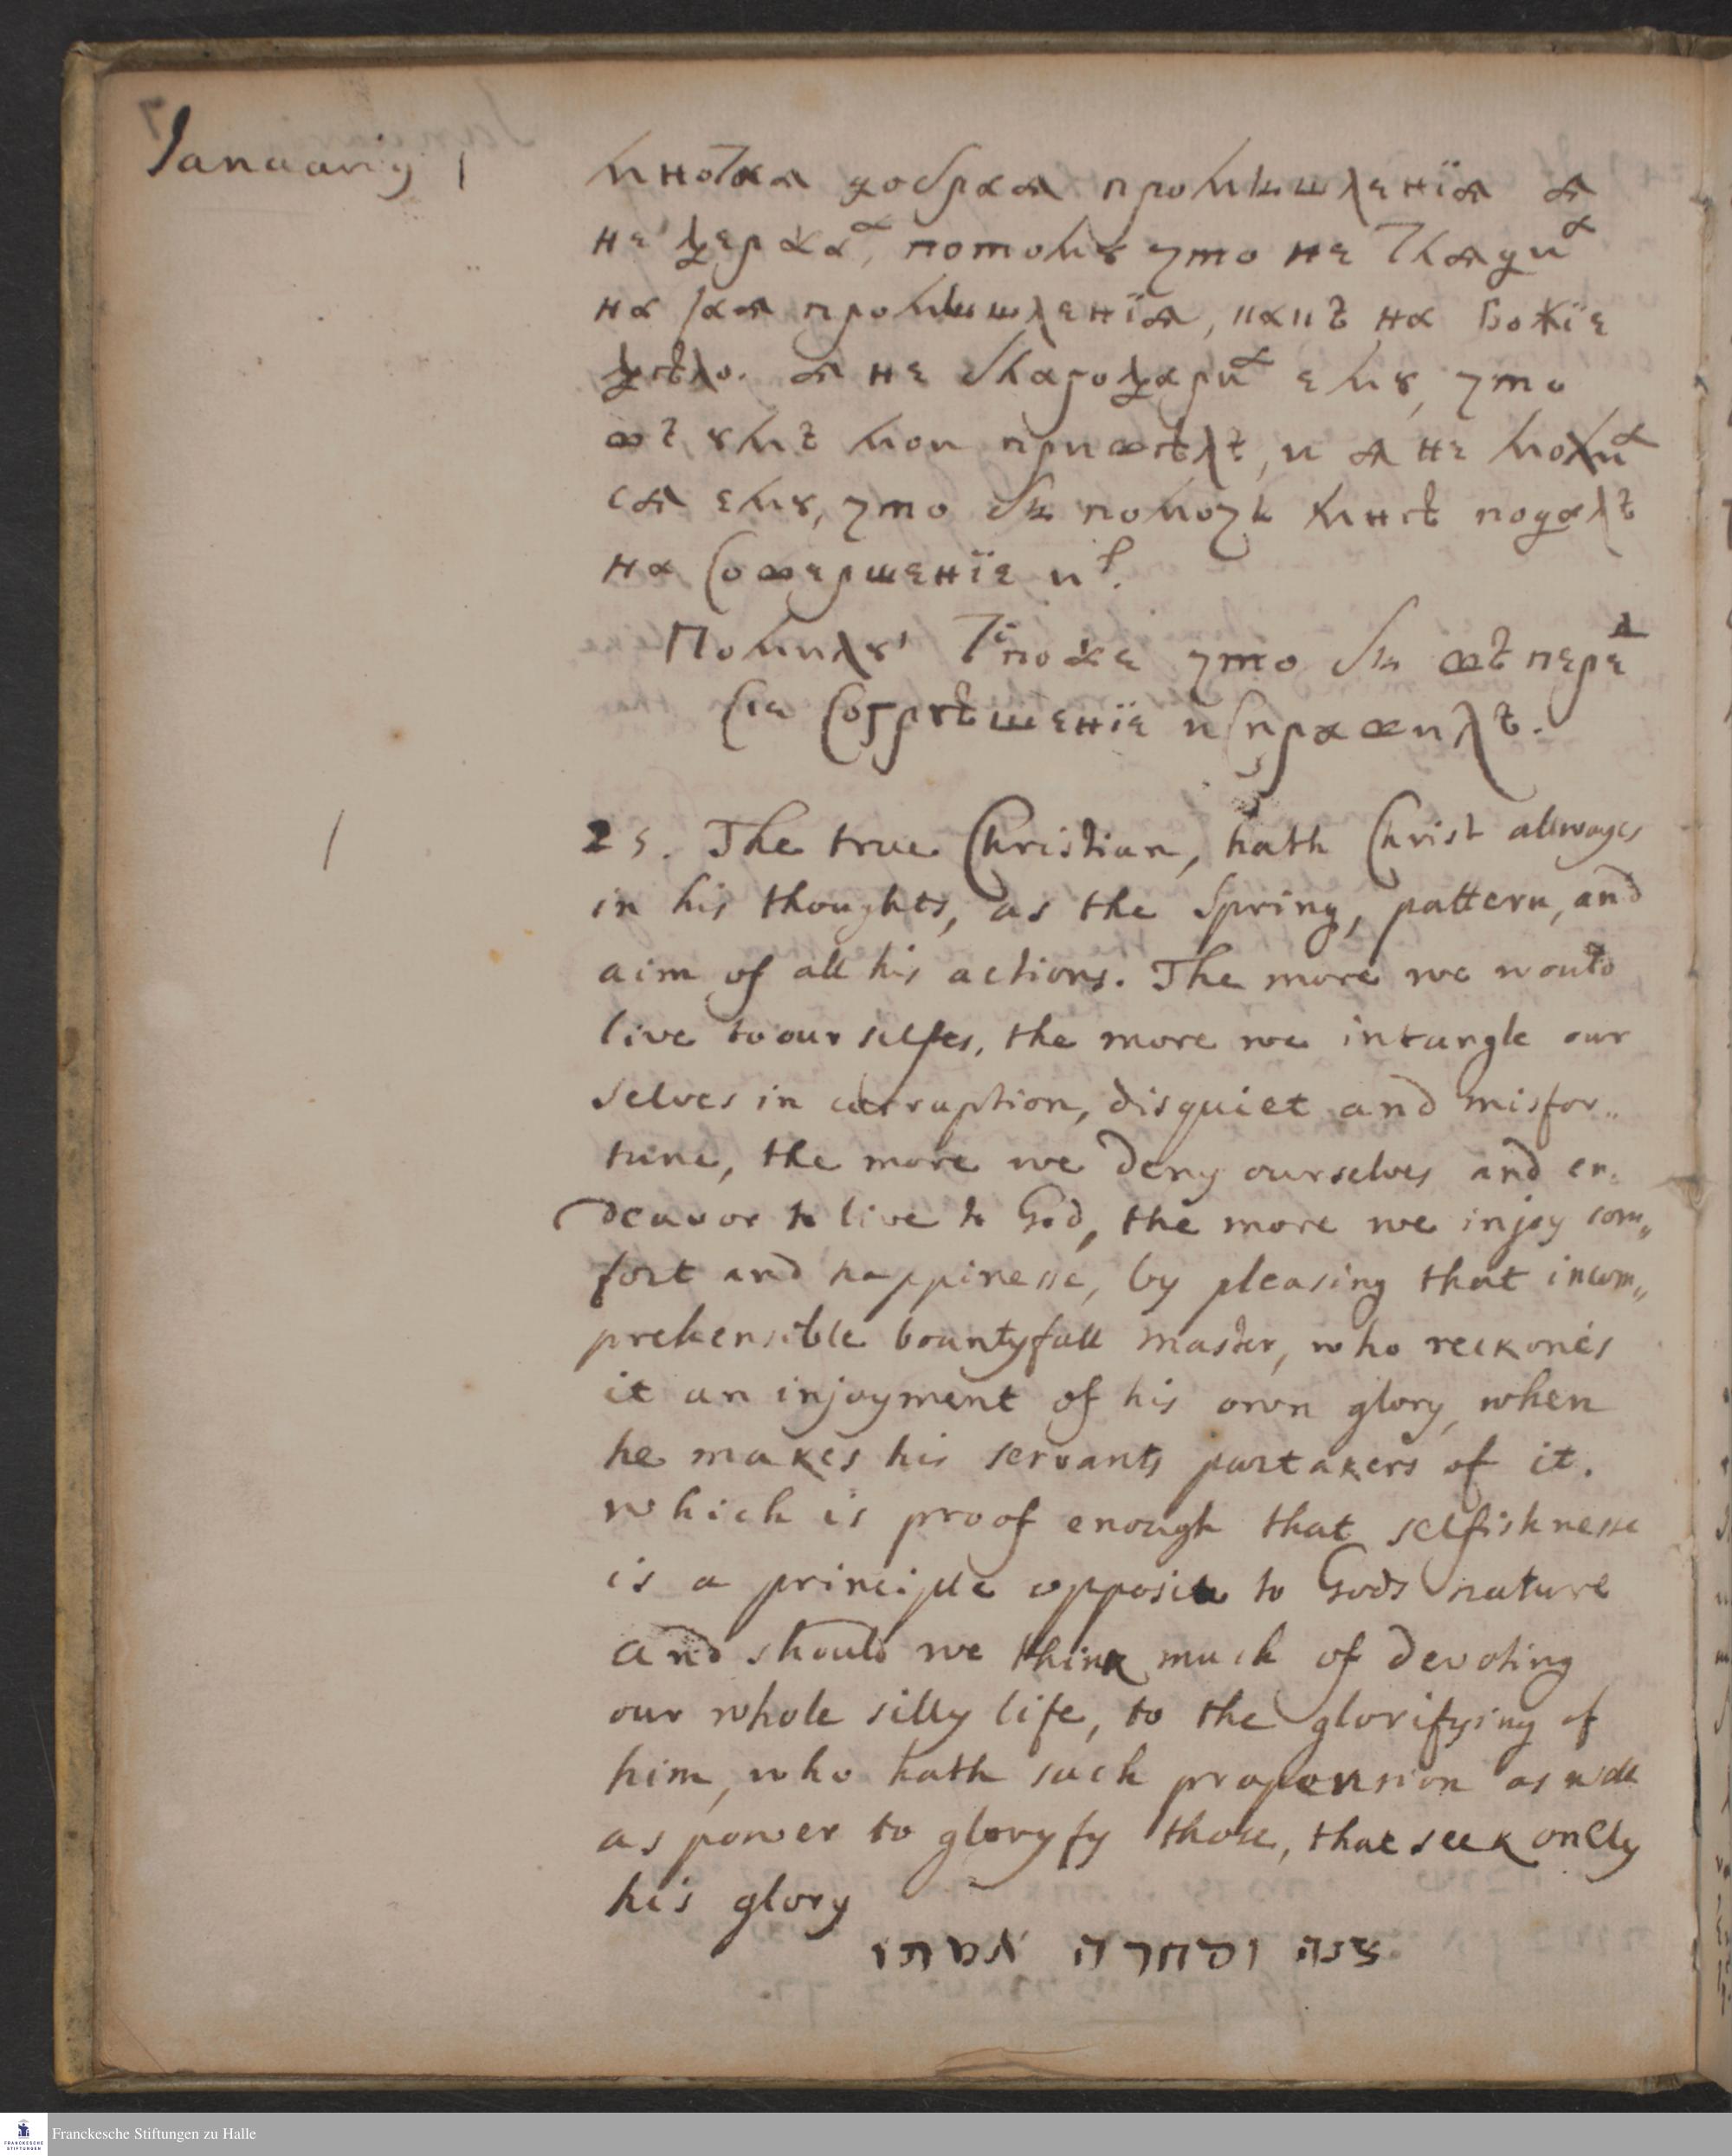 January 1
многая добрая промышленїя я
не держалъ, потому что не глядилъ
на сая промышленїя, какъ на Божїе
дѣло. я не благодарилъ ему, что
въ умъ мои привѣлъ, и я не молил
ся ему, что бы помочь мнѣ подалъ
на совершенїе их.
Помилуи Господже что бы въперед
сие согрѣшенїе исправилъ.
1
25. The true Christian, hath Christ allwayes
in his thoughts, as the Spring, pattern, and
aim of all his actions. The more we would
live to our selfes, the more we intangle our
selves in corruption, disquiet and misfor„
tune, the more we deny ourselves and en„
deavor to live to God, the more we injoy com„
fort and happinesse, by pleasing that incom„
prehensible bountyfull master, who reckones
it an injoyment of his own glory, when
he makes his servants partakers of it.
which is proof enough that selfishnesse
is a principle opposite to Gods nature
and should we think much of devoting
our whole silly life, to the glorifying of
him, who hath such propension as well
as power to gloryfy those, that seek onely
his glory
צנה וסחרה אמתו
Franckesche Stiftungen zu Halle